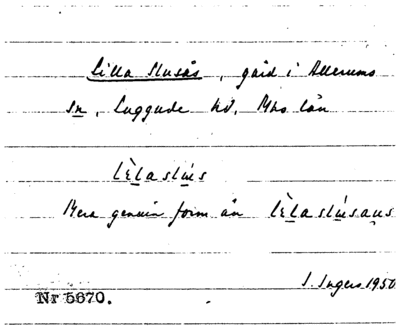 Lilla Slusås, gård i Allerums
sn, Luggude hd, Mhs län
lɛ̀la slús
Mera genuin form än lɛ̀laslúsaus
I. Ingers 1950
Nr 5670.